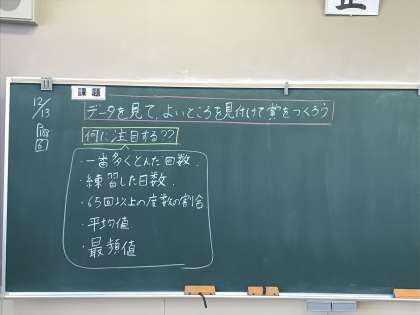 課題
12/13
データを見て、よいところを見付けて賞をつくろう
何に注目する??
・一番多くとんだ回数.
・練習した日数.
・65回以上の度数の割合
・平均値
・最頻値